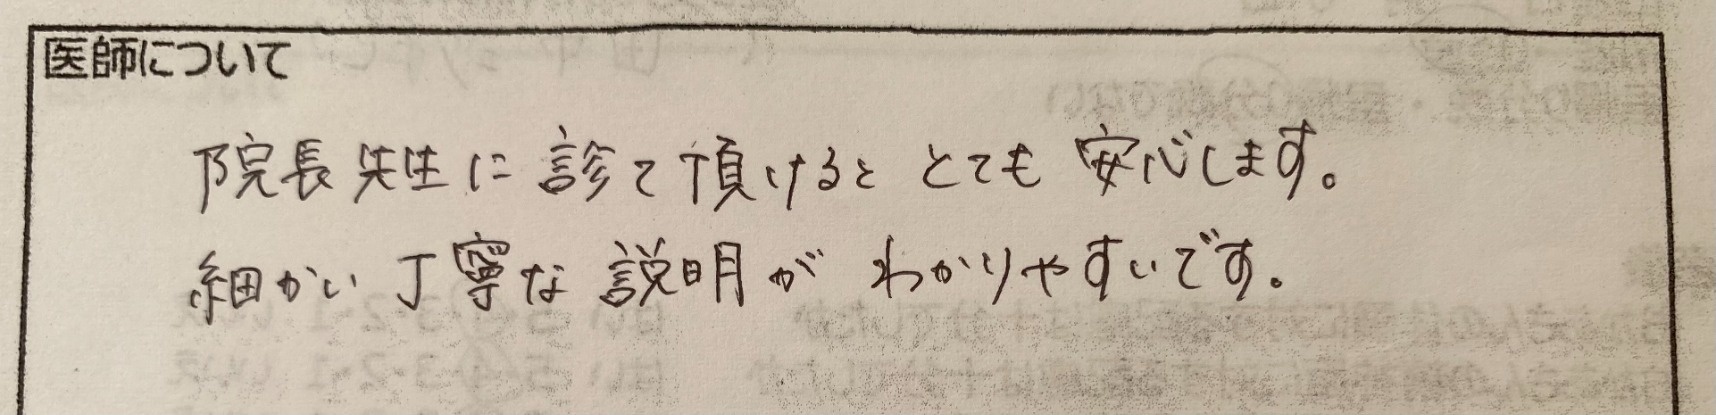 医師について
院長先生に診て頂けるととても安心します。
細かい丁寧な説明がわかりやすいです。